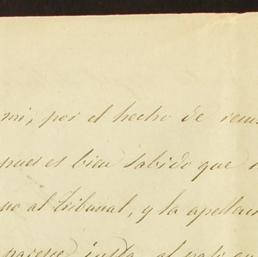 mi, por el hecho de renu
pues es bien sabido que
no al Tribunal, y la apelacion
parece justo, al